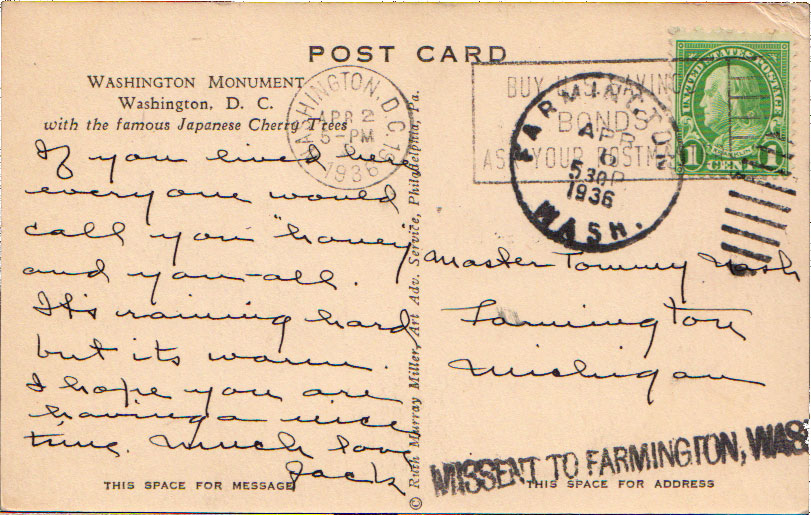 POST CARD
WASHINGTON MONUMENT
Washington, D. C.
with the famous Japanese Cherry Trees
WASHINGTON, D.C. 13
APR 2
5-PM
1936
BUY U.S. SAVINGS
BONDS
ASK YOUR POSTM
FARMINGTON
APR
6
530P
1936
WASH.
UNITED STATES POSTAGE
1 CENT 1
If you lived here
everyone would
call you "honey"
and you-all.
It's raining hard
but its warm.
I hope you are
having a nice
time. Much love
Jack
© Ruth Murray Miller, Art Adv. Service, Philadelphia, Pa.
Master Tommy Nash
Farmington
Michigan
MISSENT TO FARMINGTON, WAS
THIS SPACE FOR MESSAGE
THIS SPACE FOR ADDRESS